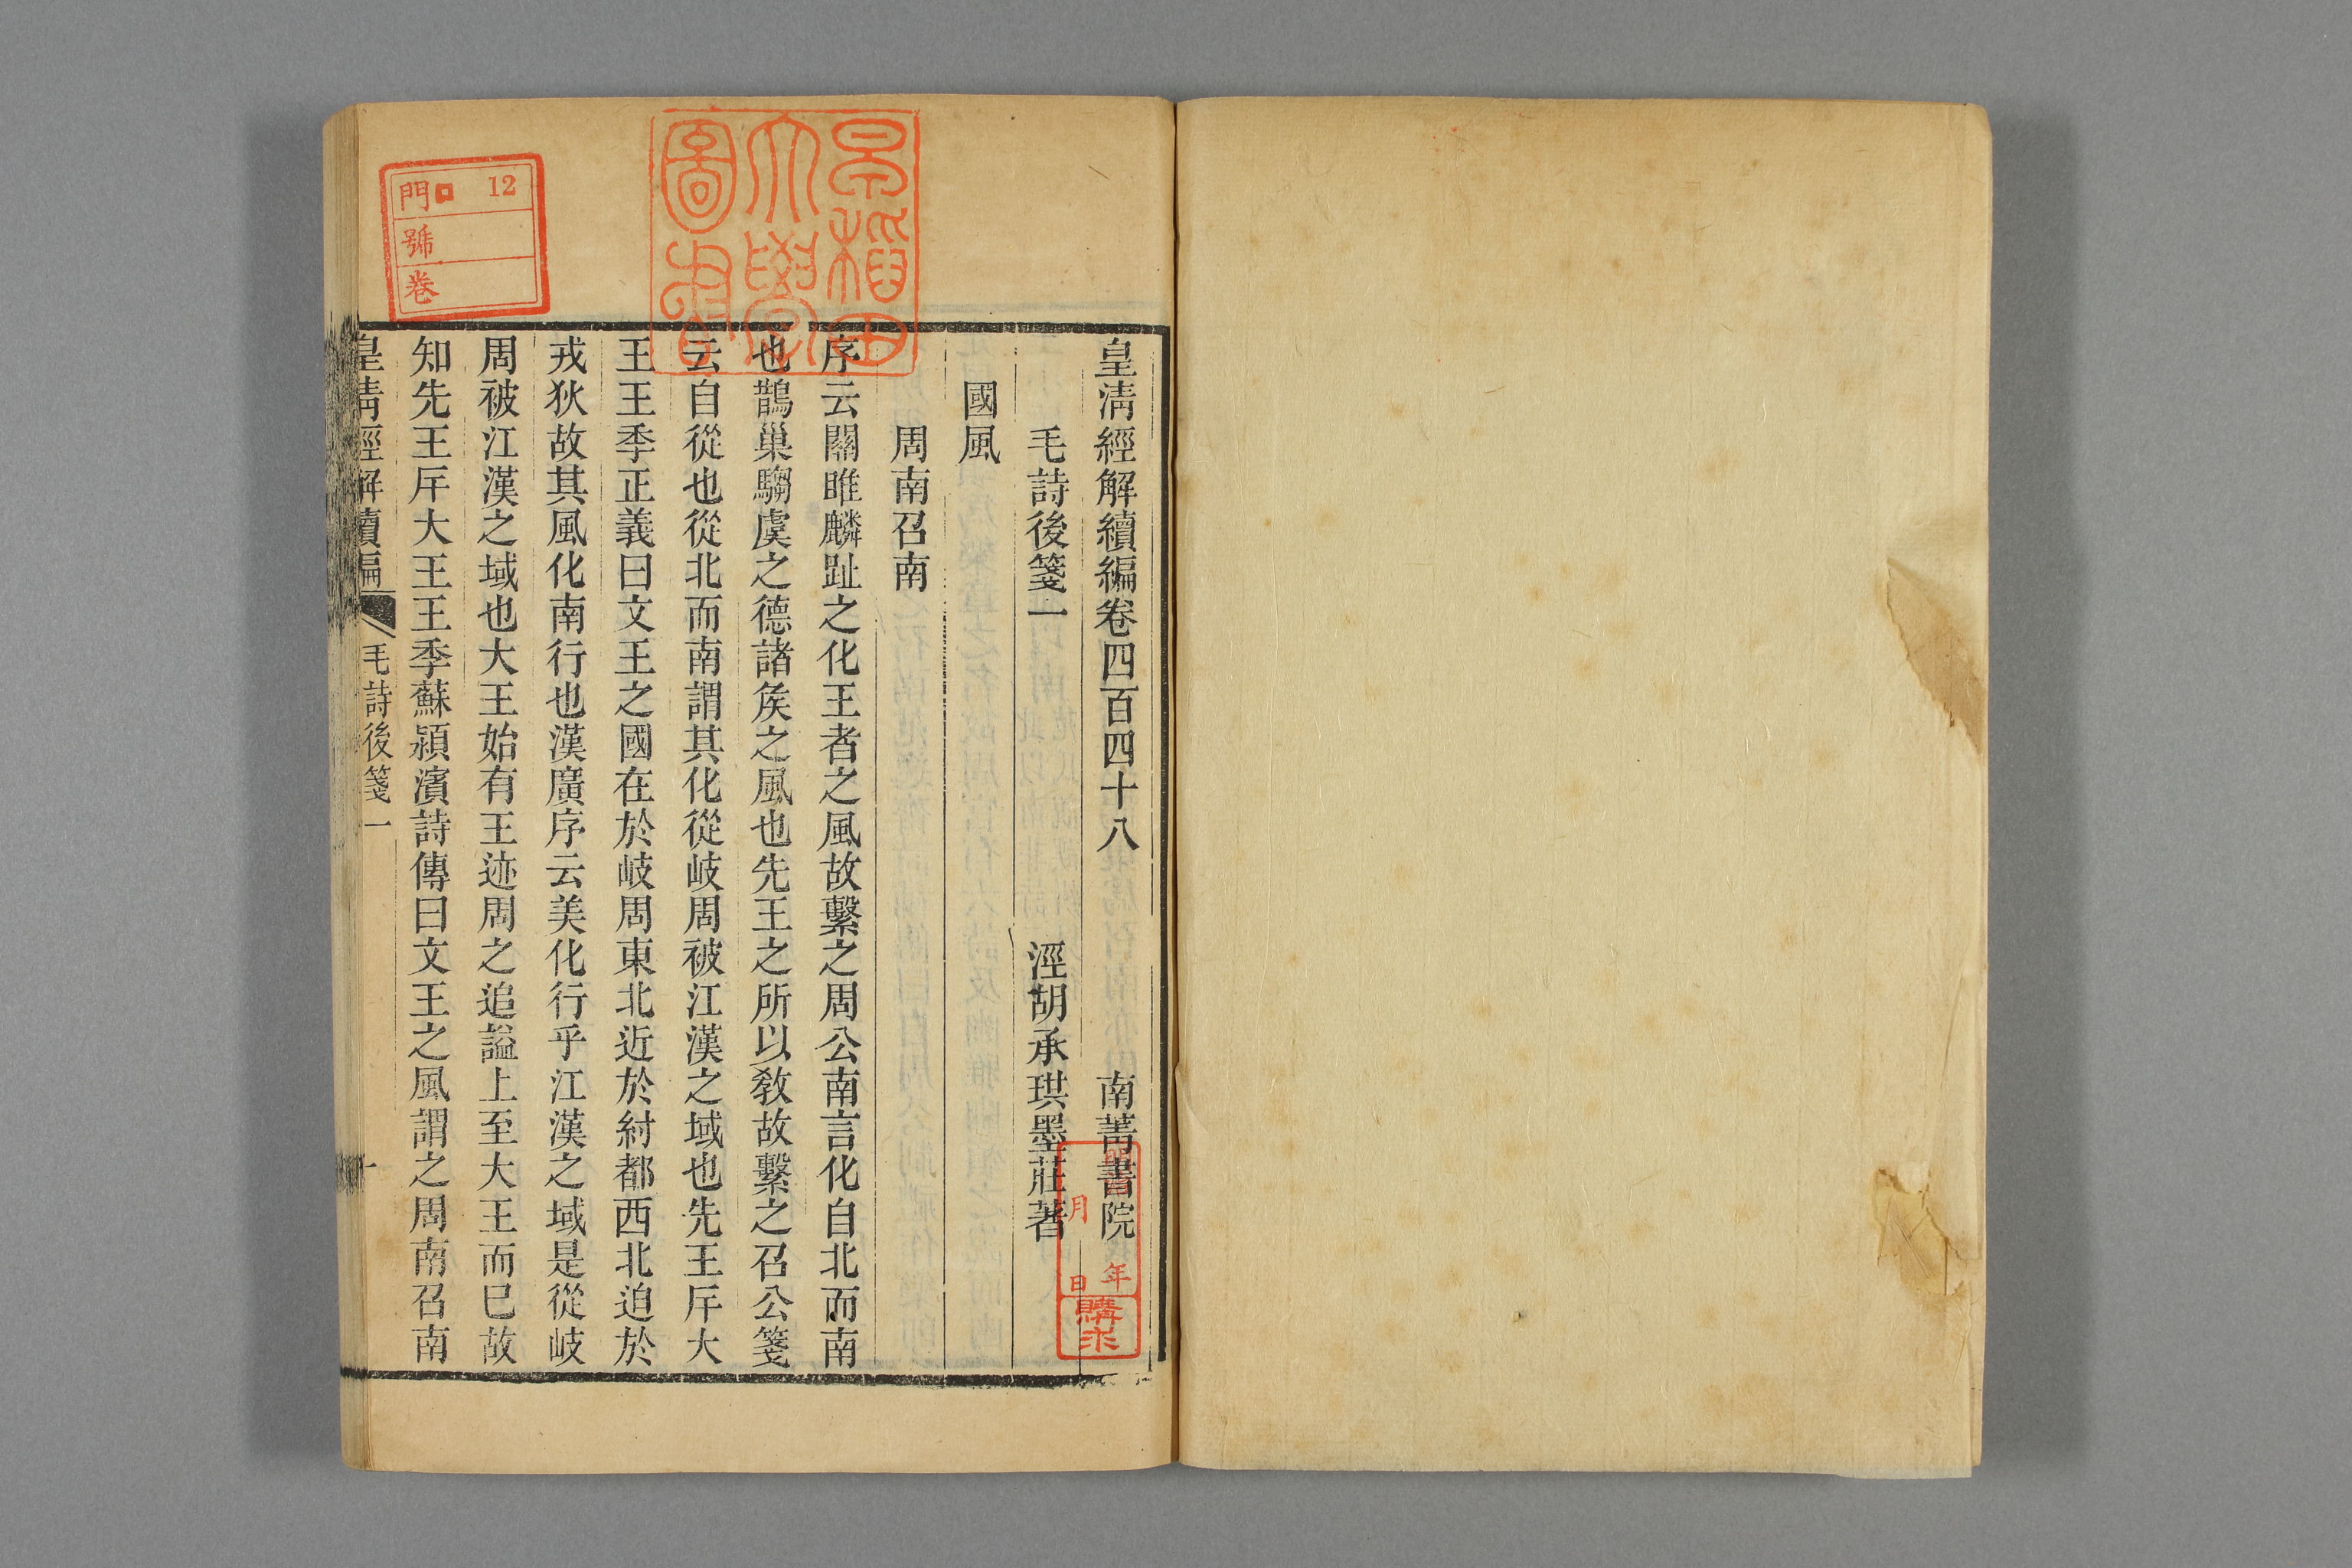 皇淸經解續編卷四百四十八 南菁書院
毛詩後箋一 涇胡承珙墨莊著
國風
周南召南
序云關雎麟趾之化王者之風故繫之周公南言化自北而南
也鵲巢騶虞之德諸矦之風也先王之所以敎故繫之召公箋
云自從也從北而南謂其化從岐周被江漢之域也先王斥大
王王季正義曰文王之國在於岐周東北近於紂都西北迫於
戎狄故其風化南行也漢廣序云美化行乎江漢之域是從岐
周被江漢之域也大王始有王迹周之追謚上至大王而巳故
知先王斥大王王季蘇潁濱詩傳曰文王之風謂之周南召南
皇淸經解續編 毛詩後箋一 一
早稻田大學圖書
門口 12
號
卷
年
月
日
購求